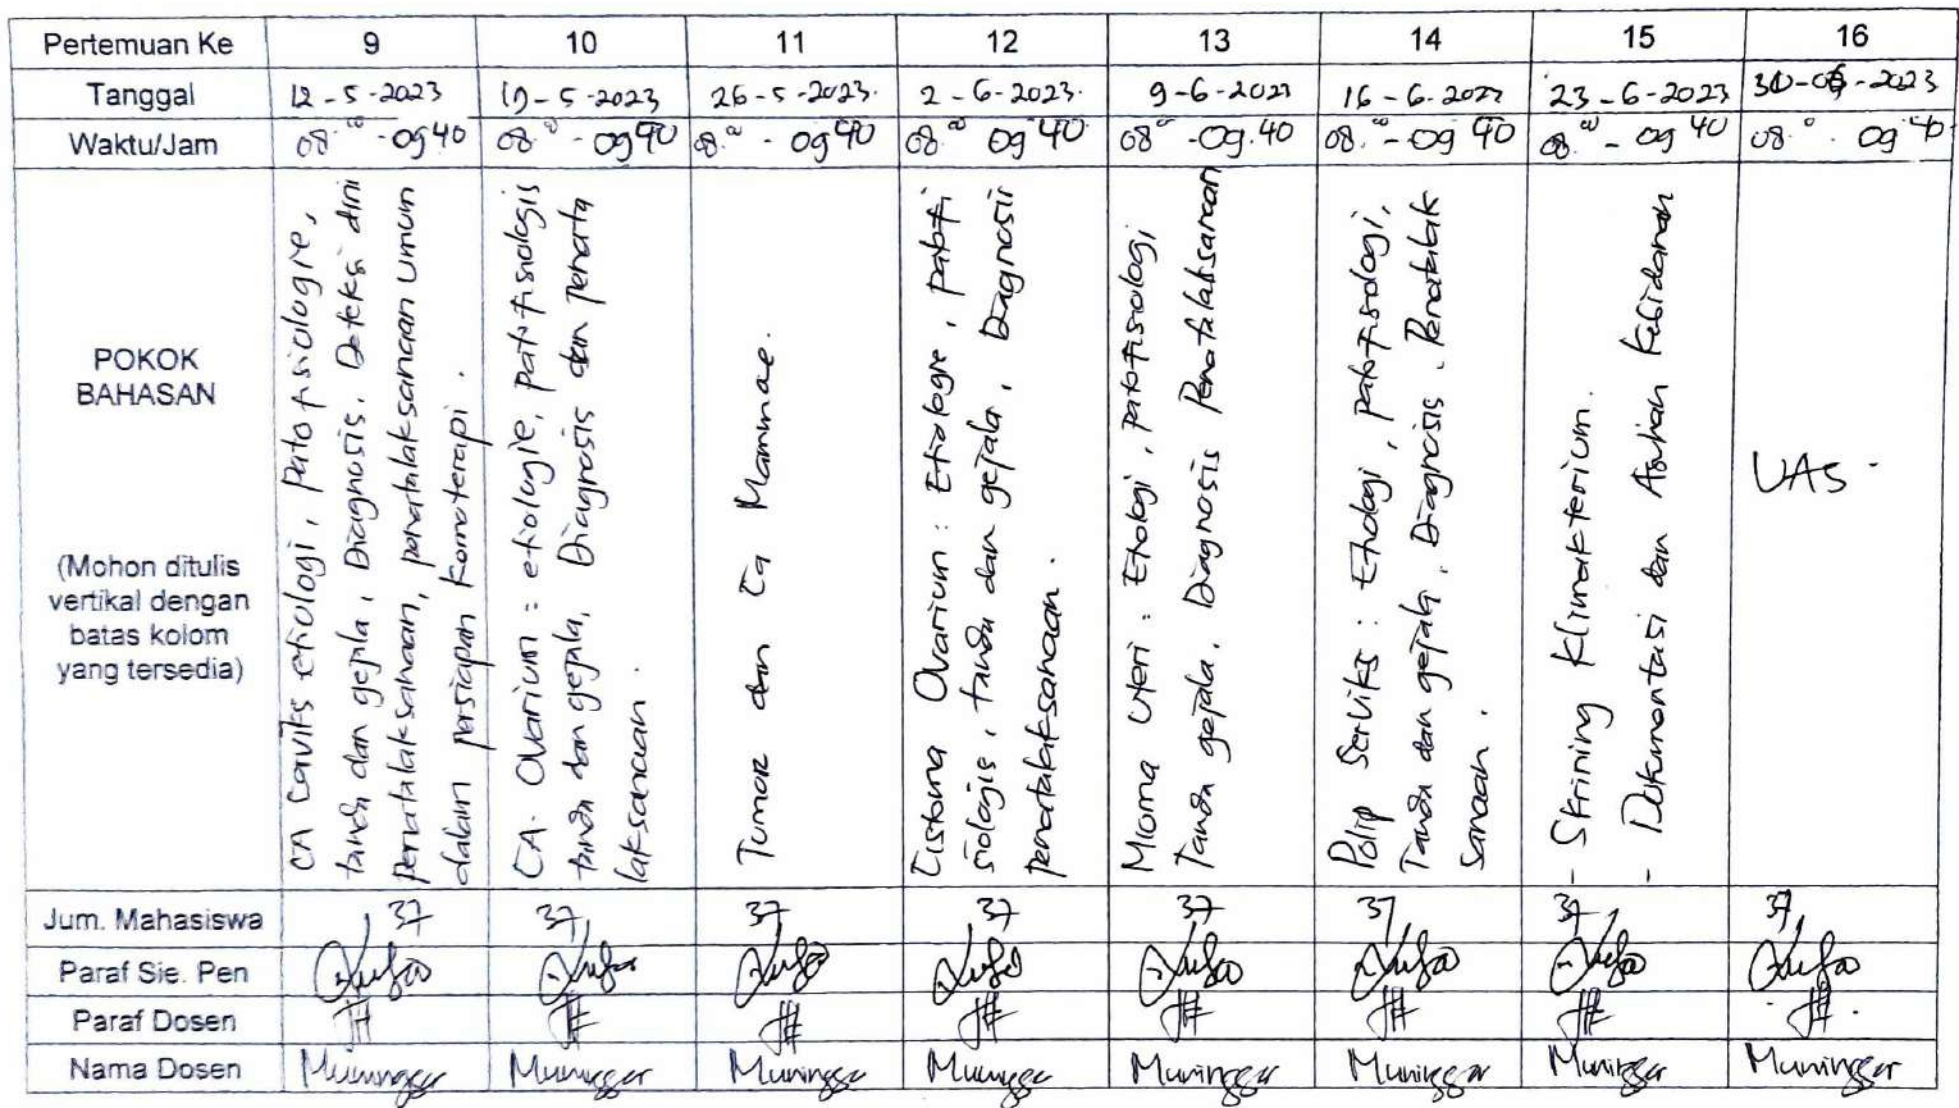 Pertemuan Ke 9 10 11 12 13 14 15 16
Tanggal 12-5-2023 19-5-2023 26-5-2023. 2-6-2023. 9-6-2023 16-6-2023 23-6-2023 30-06-2023
Waktu/Jam 08.00 - 09 40 08.00 - 09 40 08.00 - 09 40 08.00 09 40 08.00 - 09.40 08.00 - 09 40 08.00 - 09 40 08.00 . 09 40
POKOK
BAHASAN
(Mohon ditulis
vertikal dengan
batas kolom
yang tersedia)
CA Cerviks etiologi, patofisiologie,
tanda dan gejala, Diagnosis, Deteksi dini
Penatalaksanaan, penatalaksanaan umum
dalam persiapan Komoterapi.
CA. Ovarium : etiologie, patofisiologis
tanda dan gejala, Diagnosis dan Penata
laksanaan.
Tumor dan Ca Mammae.
Cistoma Ovarium : Etiologie, patofi
siologis, tanda dan gejala, Diagnosis
penatalaksanaan.
Mioma Uteri : Etiologi, patofisiologi
Tanda gejala, Diagnosis Penatalaksanaan
Polip Serviks : Etiologi, patofisiologi,
Tanda dan gejala, Diagnosis, Penatalak
Sanaan.
- Skrining Klimakterium.
- Dokumentasi dan Asuhan Kebidanan
UAS.
Jum. Mahasiswa 37 37 37 37 37 37 37 37
Paraf Sie. Pen
Paraf Dosen
Nama Dosen Muninggar Muninggar Muningga Muningga Muninggar Muninggar Muninggar Muninggar